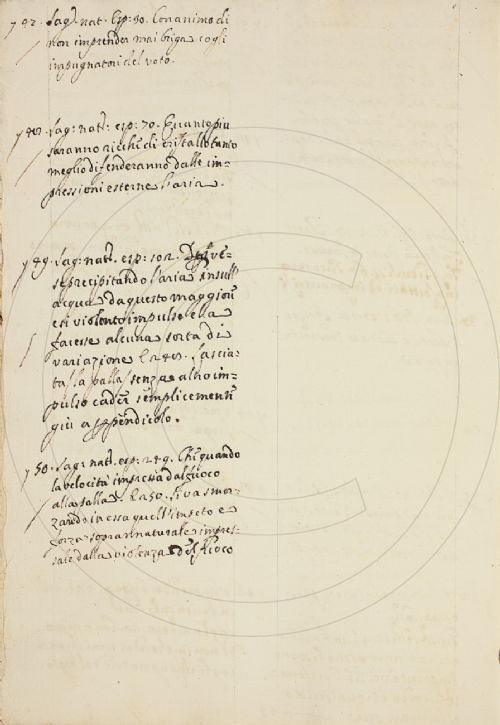 Sag. nat. Esp: 30. Con animo di
non imprender mai briga cogli
impugnatori del voto.
Sag: natt: esp: 70. Quanto più
saranno ricchi di cristallo tanto
meglio difenderanno dalle im=
pressioni esterne l'aria.
749. Sag: natt. esp: 102. Se ve=
se precipitando l'aria insull'
acqua da questo maggiore
e sì violento impulso ella
facesse alcuna sorta di
variazione. E 248. Lascia=
ta la palla senza altro im=
pulso cader semplicemente
giù a pendicolo.
750. Sag: natt. esp: 249. Che quando
la velocità impressa dal fuoco
alla palla. E 250. Si va smor=
zando in essa quell'impeto e
forza soprannaturale impres=
sale dalla violenza del fuoco